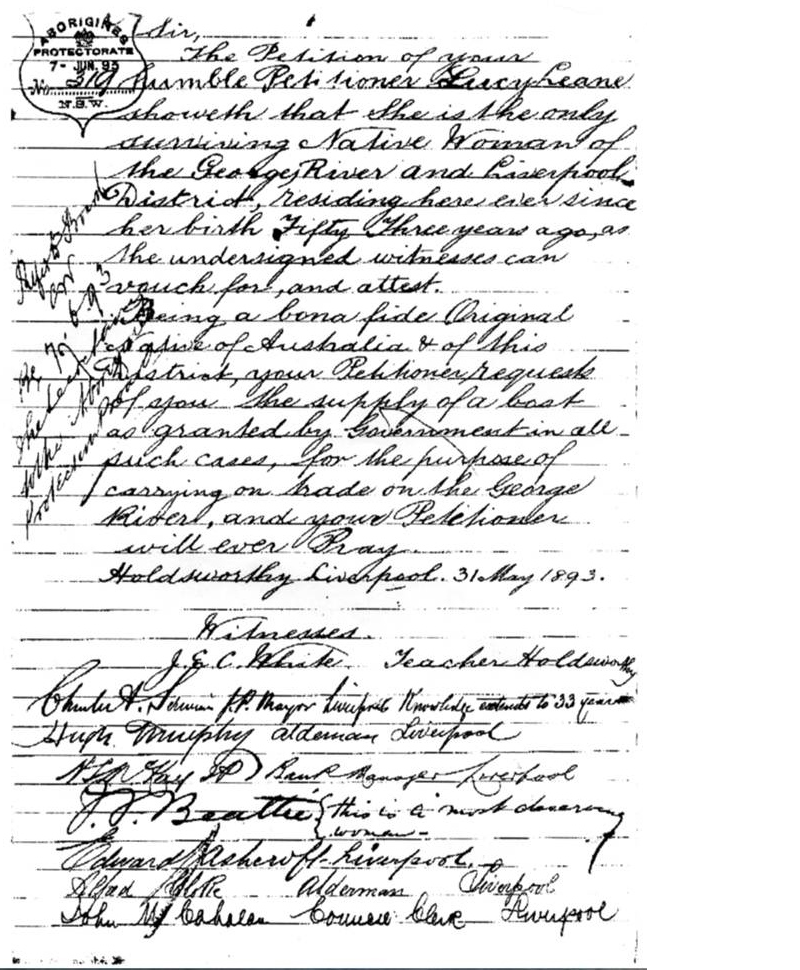 ABORIGINES
PROTECTORATE
7- JUN. 93
No. 319
N.S.W.
Sir,
The Petition of your
humble Petitioner Lucy Leane
showeth that She is the only
surviving Native Woman of
the Georges River and Liverpool
District, residing here ever since
her birth Fifty Three years ago, as
the undersigned witnesses can
vouch for, and attest.
Being a bona fide Original
native of Australia & of this
District, your Petitioner requests
of you the supply of a boat
as granted by Government in all
such cases, for the purpose of
carrying on trade on the George
River, and your Petitioner
will ever Pray.
Holdsworthy Liverpool. 31 May 1893.
7.6.93
The Secretary
to the
Protection
Witnesses.
J. E. C. White Teacher Holdsworthy
J.P. Mayor Liverpool Knowledge extends to 33 years
Hugh Murphy alderman Liverpool
Bank Manager Liverpool
J. J. Beattie { this is a most deserving
woman -
Edward Ashcroft - Liverpool.
Alderman Liverpool
John Council Clerk Liverpool